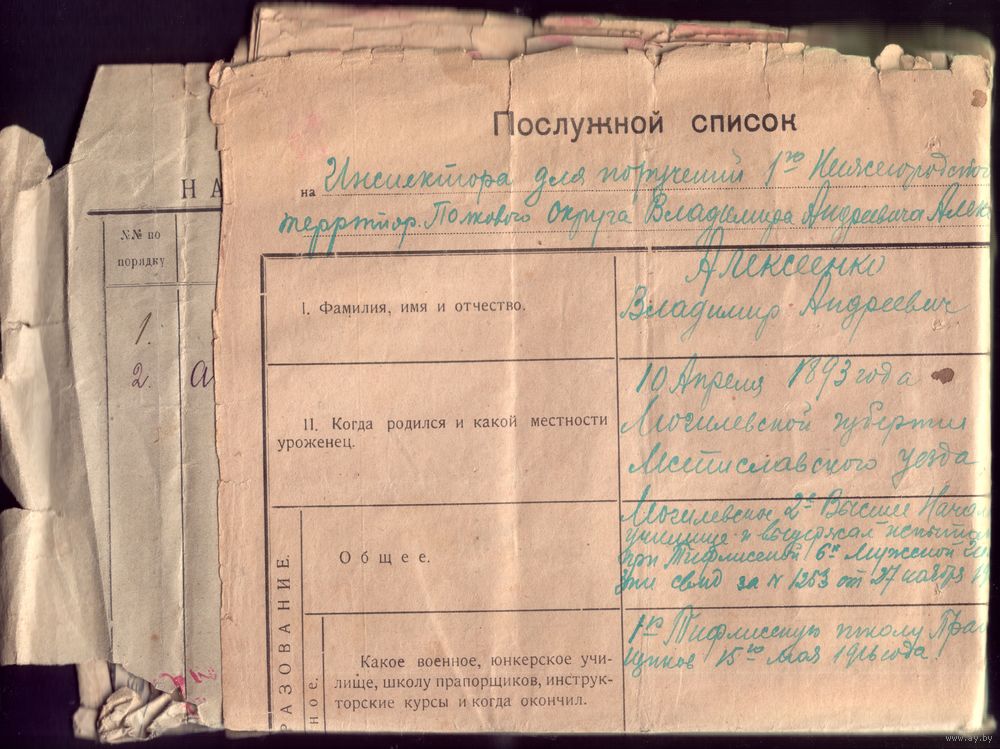 Послужной список
на Инспектора для поручений 1го Нижегородского
территор. Полкового Округа Владимира Андреевича Алек
НА
№№ по
порядку
1.
2. а
I. Фамилия, имя и отчество.
Алексеенко
Владимир Андреевич
II. Когда родился и какой местности
уроженец.
10 Апреля 1893 года
Могилевской губернии
Мстиславского уезда
РАЗОВАНИЕ.
Общее.
Могилевское 2е Высшее Начал
училище и выдержал испытан
при Тифлисской 6й Мужской
свид за № 1253 от 27 ноября 19
ное.
Какое военное, юнкерское учи-
лище, школу прапорщиков, инструк-
торские курсы и когда окончил.
1ую Тифлисскую школу Прап
щиков 15го мая 1916 года.
www.ay.by